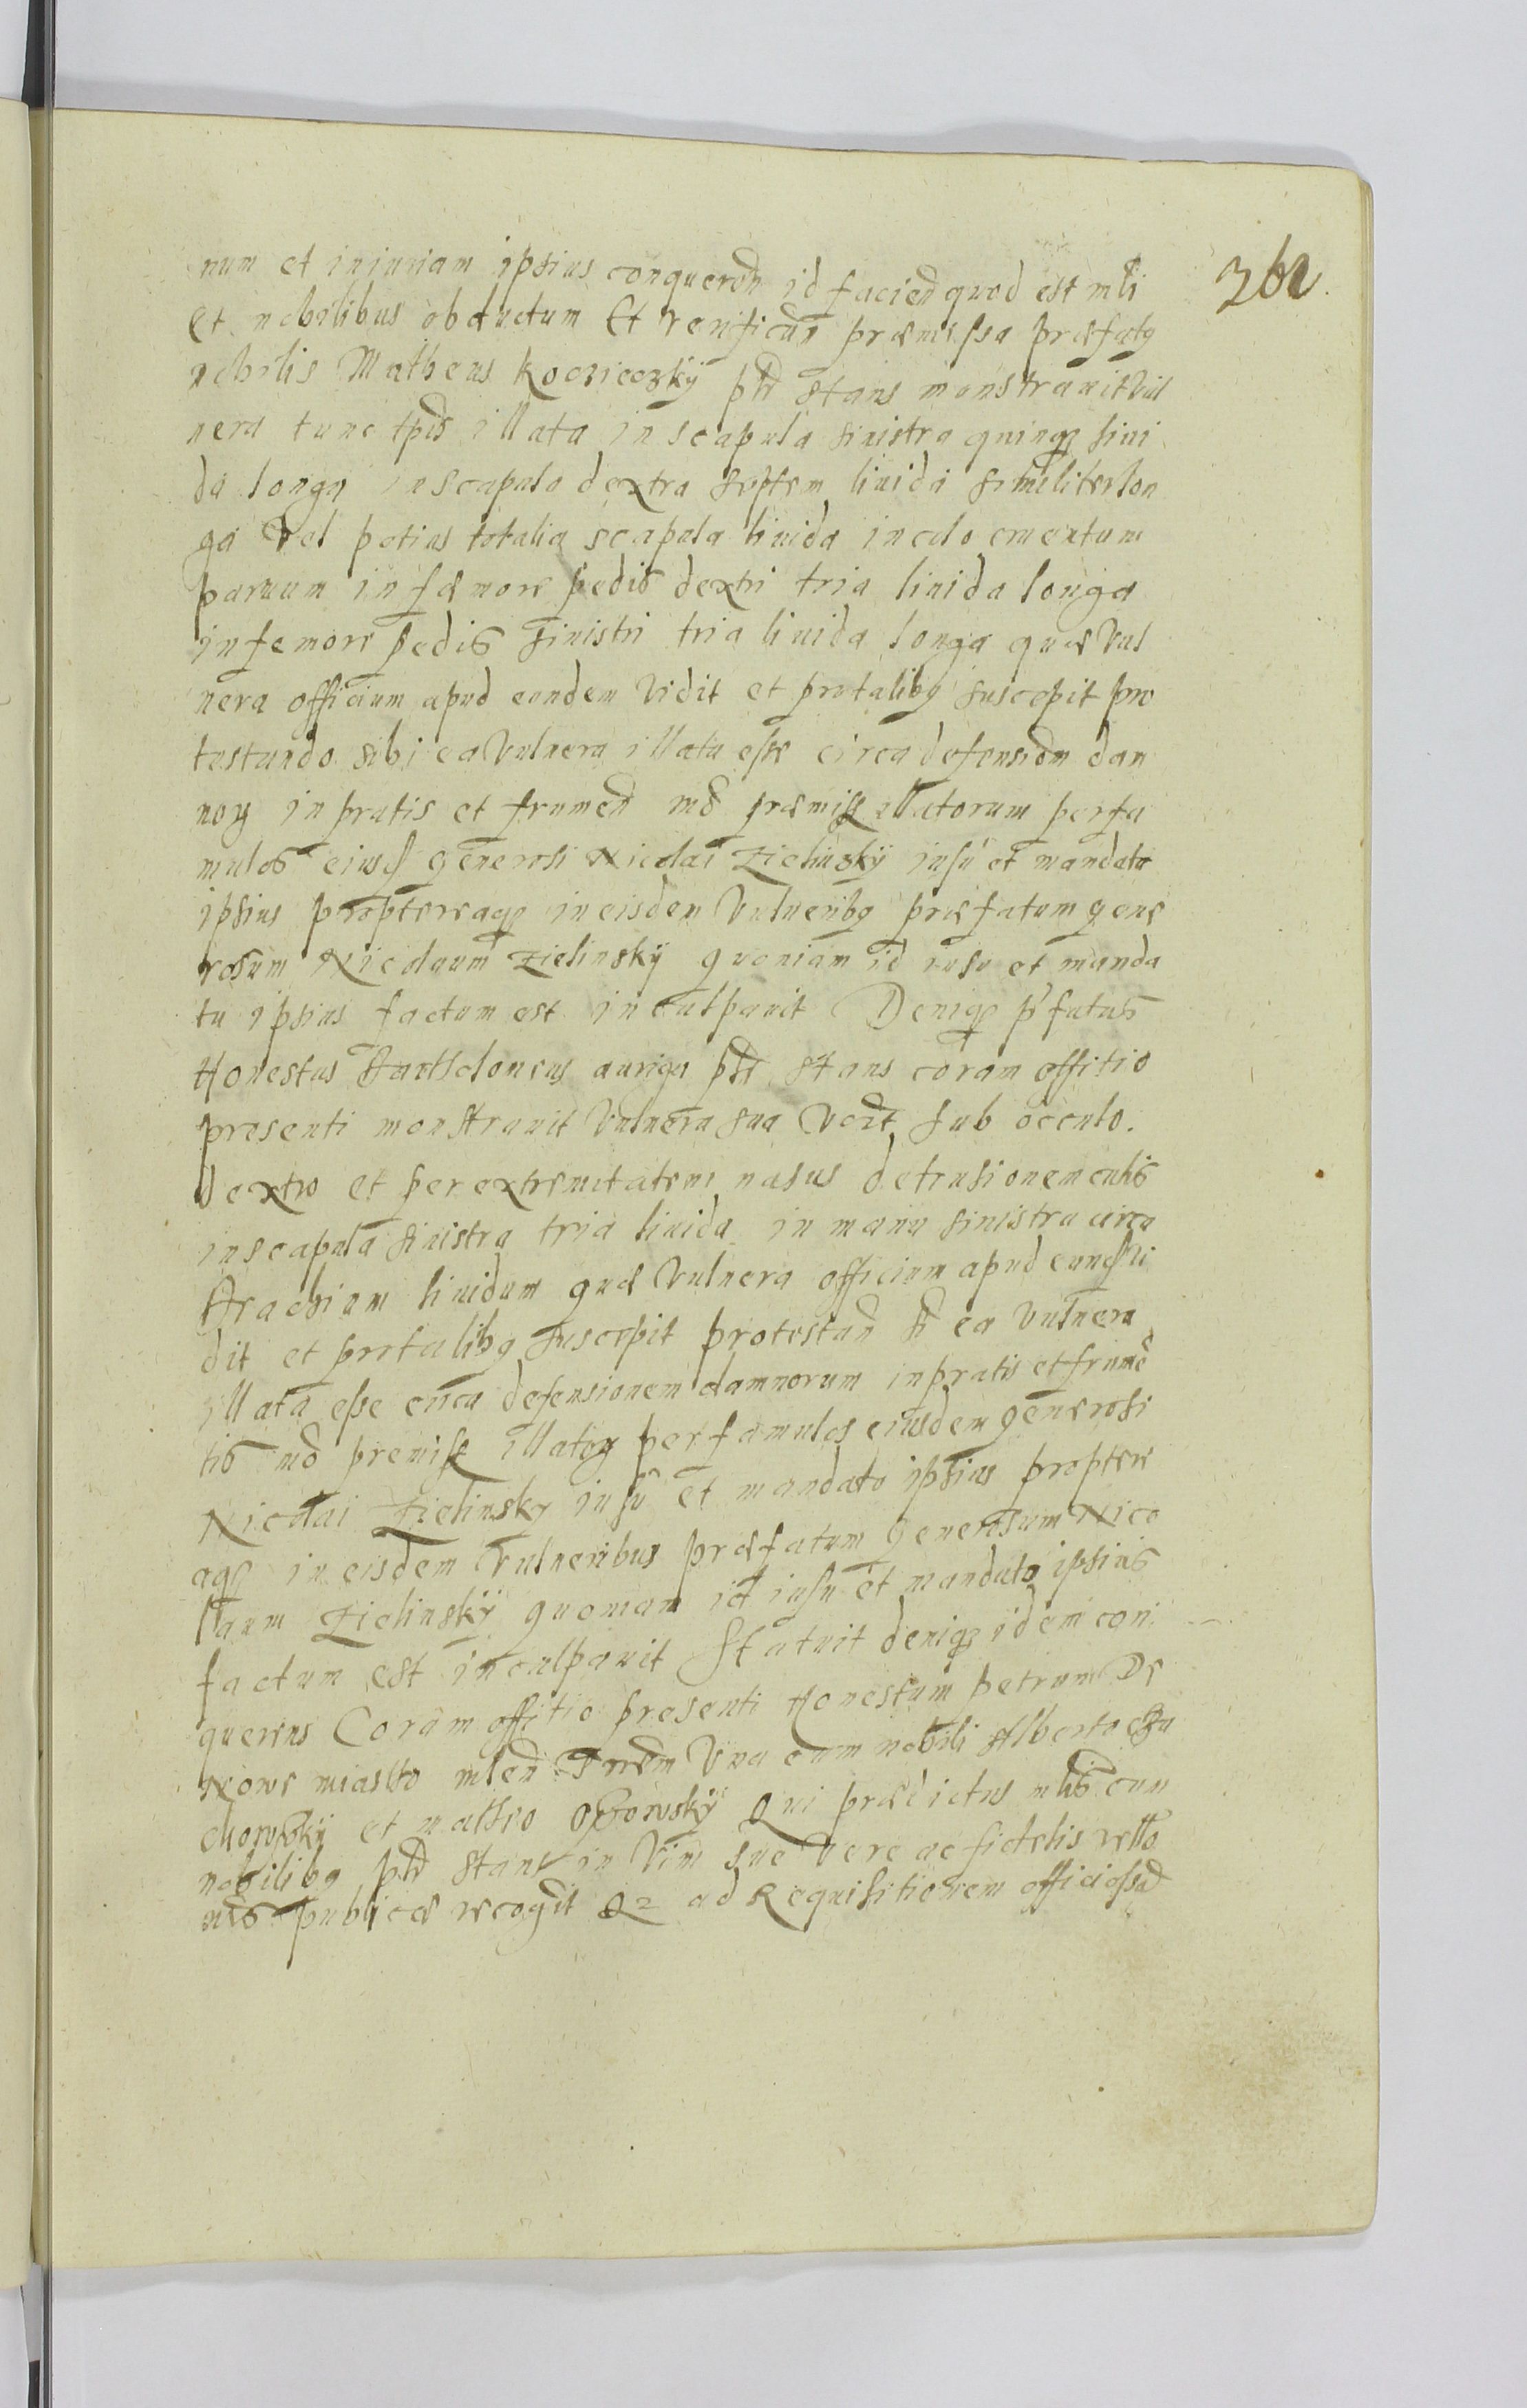 362
num et iniuriam ipsius conqueren id facien quod est mli
et nobilibus obductum Et verifican præmissa præfatq
nobilis Matheus Koczieczkÿ ptr stans monstrauit vul
nera tunc tpis illata in scapula sinistra quinq liui
da longa in scapula dextra septem liuida similiter lon
ga vel potius totalia scapula liuida in culo cruentum
paruum in fæmore pedis dextri tria liuida longa
in femore pedis sinistri tria liuida longa quæ vul
nera officium apud eondem vidit et pro talibq suscepit pro
testando sibi ea vulnera illata esse circa defensionem dam
noꝝ in pratis et frumen mo præmisse illatorum per fa
mulos eiusd generosi Nicolai Zielinskÿ iusu et mandato
ipsius proptereaq in eisdem vulneribq præfatum gene
rosum Nicolaum Zielinskÿ quoniam id iusu et manda
tu ipsius factum est inculpauit Deniq pfatus
Honestus Bartholomeus auriga ptr stans coram offitio
presenti monstrauit vulnera sua sub occulo.
dextro et per extremitatem nasus detrusionem cutis
in scapula sinistra tria liuida in manu sinistra circa
brachium liuidum quæ vulnera officium apud eund vi
dit et pro talibq suscepit protestan s ea vulnera
illata esse circa defensionem damnorum in pratis et frume
tis mo premisse illatoꝝ per famulos eiusdem generosi
Nicolai Zielinsky iusu et mandato ipsius propter
aq in eisdem vulneribus præfatum Generosum Nico
laum Zielinskÿ quoniam id iusu et mandato ipsius
factum est inculpauit Statuit deniq idem con
querens Coram offitio presenti Honestum petrum De
Nowe miasto una cum nobili Alberto Czu
chowskÿ et matheo Qui prædictus mlis cum
nobilibq ptr stans in vim sue vere ac fidelis rello
nis publicæ recogit Qz ad Requisitionem officiossa